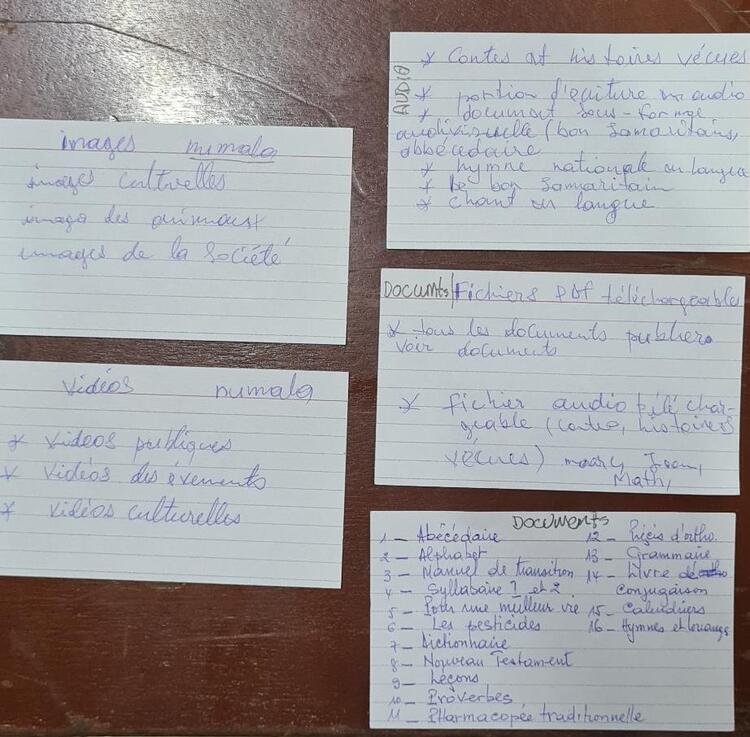 images numala
images culturelles
image des animaux
images de la société
Vidéos numala
* Videos publiques
* Vidéos des évements
* vidéos culturelles
AUDIO
* Contes et histoires vécues
* portion d'ecriture en audio
* document sous-forme
audivisuelle (bon Samaritain,
abbécédaire
* hymne nationale en langue
* Le bon Sammaritain
* chant en langue
DOCUMTS/Fichiers PDF téléchargeables
* tous les documents publiers
voir documents
* fichier audio télé char-
geable (contes, histoires
vécues) marc, Jean,
Math,
DOCUMENTS
1 _ Abécédaire
2 _ Alphabet
3 _ Manuel de transition
4 _ Syllabaire 1 et 2
5 _ Pour une meilleur vie
6 _ Les pesticides
7 _ Dictionnaire
8 _ Nouveau Testament
9 _ Leçons
10 _ Proverbes
11 _ Pharmacopée traditionnelle
12 _ Précis d'ortho.
13 _ Grammaire
14 _ Livre de
conjugaison
15 _ Calendriers
16 _ Hymnes et louanges